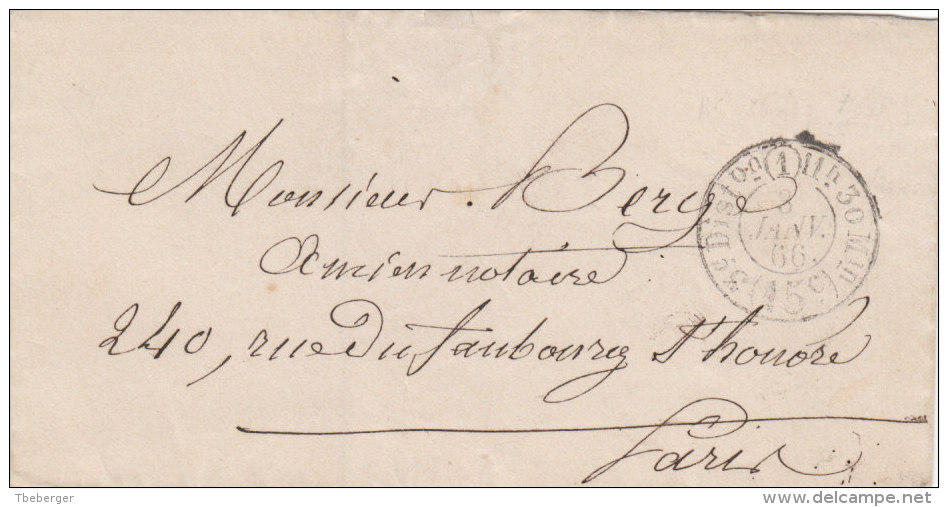 Monsieur Berge
Ancien notaire
240, rue Du faubourg St honoré
Paris
3e Diston (1) 11h 30 Min
8
JANV.
66.
(15c)
Tberberger
delcampe.net